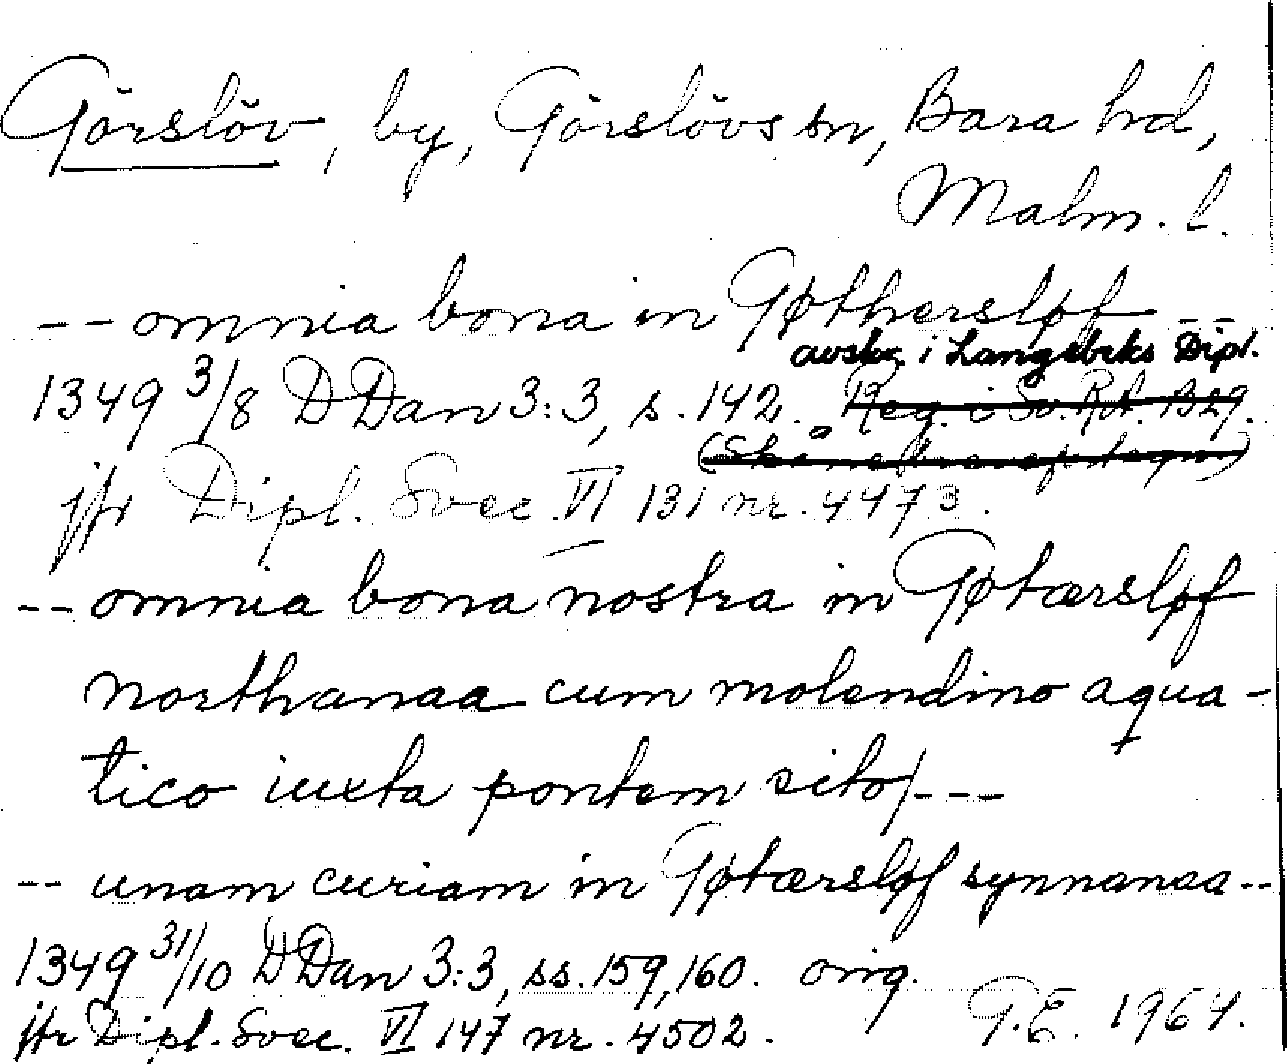 Görslöv, by, Görslövs sn, Bara hd,
Malm. l.
-- omnia bona in Gøthersløf --
avskr. i Langebeks Dipl.
1349 3/8 DDan 3:3, s. 142. Reg. i Sv. RA. 1329.
jfr Dipl. Svec. VI 131 nr. 4473.
-- omnia bona nostra in Gøtærsløf
northanaa cum molendino aqua-
tico iuxta pontem sito/---
-- unam curiam in Gøtærsløf synnanaa--
1349 31/10 DDan 3:3, ss. 159, 160. orig.
jfr Dipl. Svec. VI 147 nr. 4502.
G.E. 1964.